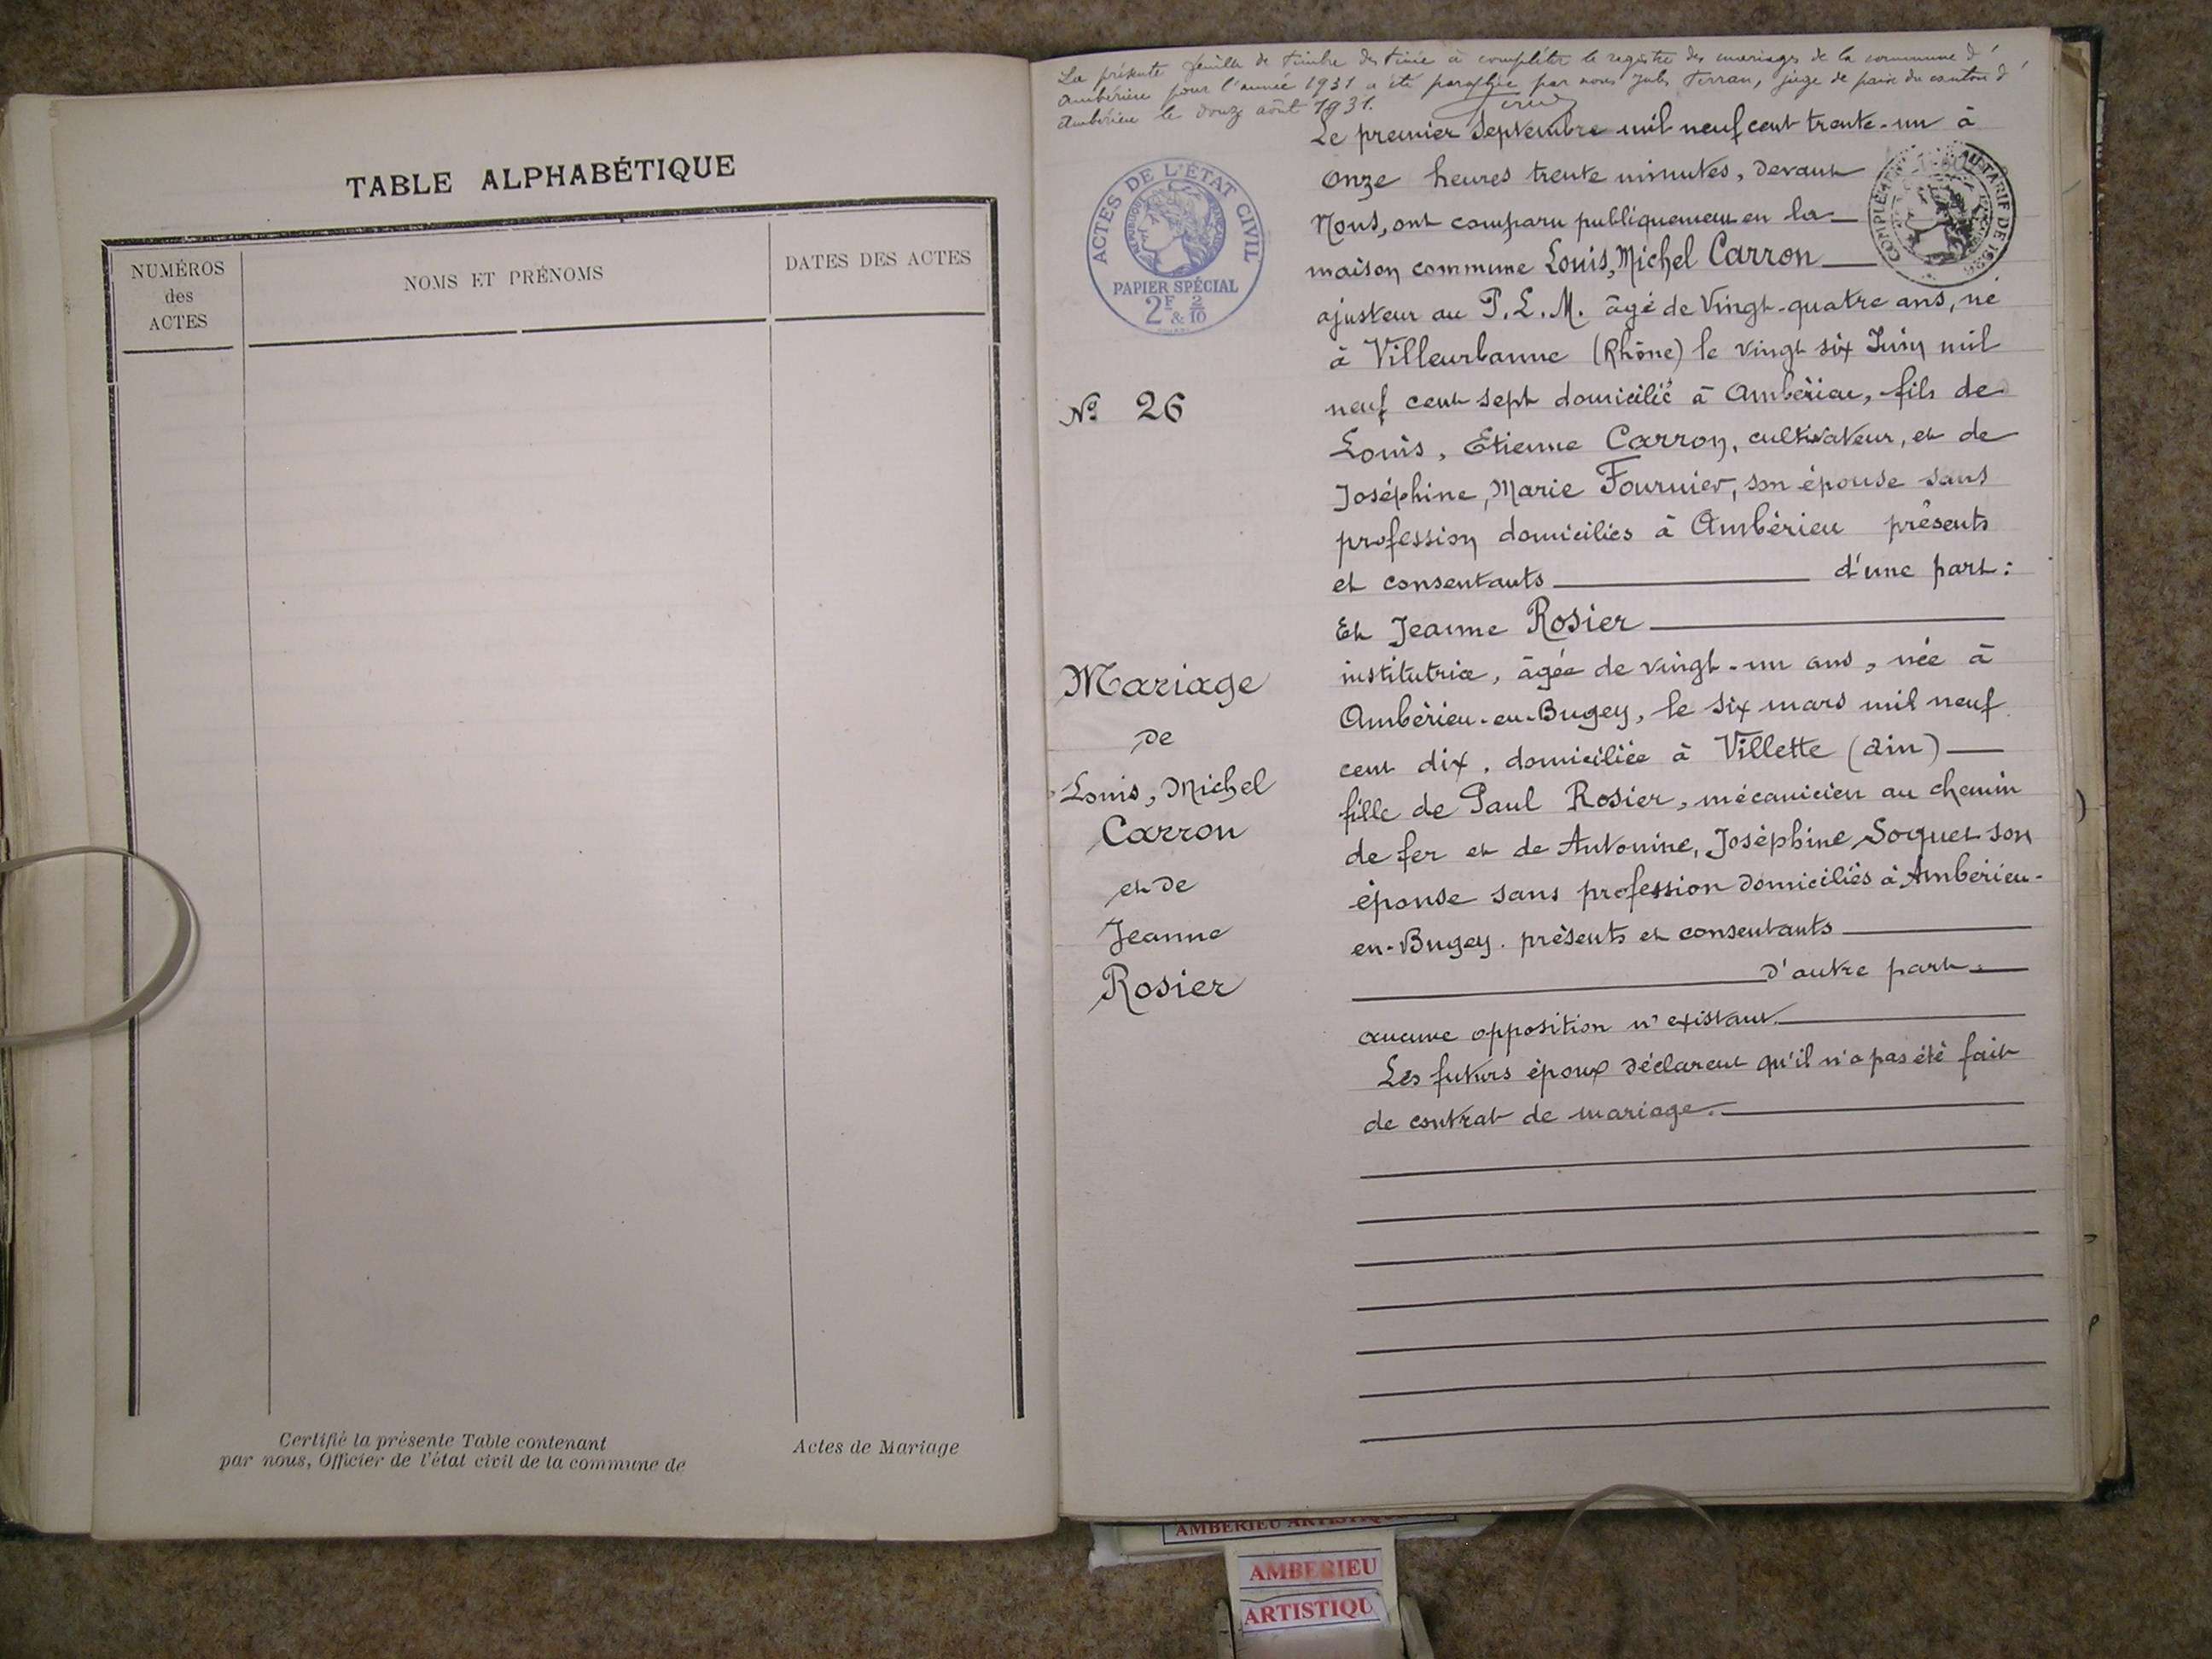 TABLE ALPHABÉTIQUE
NUMÉROS
des
ACTES
NOMS ET PRÉNOMS
DATES DES ACTES
Certifié la présente Table contenant
Actes de Mariage
par nous, Officier de l'état civil de la commune de
La présente feuille de timbre destinée à compléter le registre des mariages de la commune d'
Ambérieu pour l'année 1931 a été paraphée par nous Jules Terran, juge de paix du canton d'
Ambérieu le douze août 1931.
ACTES DE L'ÉTAT CIVIL
RÉPUBLIQUE FRANÇAISE
PAPIER SPÉCIAL
2F & 2/10
COMPLÉMENT AU TARIF DE 1926
Nº 26
Mariage
de
Louis, Michel
Carron
et de
Jeanne
Rosier
Le premier Septembre mil neuf cent trente-un à
onze heures trente minutes, devant
Nous, ont comparu publiquement en la
maison commune Louis, Michel Carron
ajusteur au P.L.M. âgé de vingt-quatre ans, né
à Villeurbanne (Rhône) le vingt six Juin mil
neuf cent sept domicilié à Ambérieu, fils de
Louis, Etienne Carron, cultivateur, et de
Joséphine, Marie Fournier, son épouse sans
profession domiciliés à Ambérieu présents
et consentants d'une part:
Et Jeanne Rosier
institutrice, âgée de vingt-un ans, née à
Ambérieu-en-Bugey, le six mars mil neuf
cent dix, domiciliée à Villette (Ain)
fille de Paul Rosier, mécanicien au chemin
de fer et de Antonine, Joséphine Soquet son
épouse sans profession domiciliés à Ambérieu-
en-Bugey. présents et consentants
d'autre part.
aucune opposition n'existant.
Les futurs époux déclarent qu'il n'a pas été fait
de contrat de mariage.
AMBERIEU ARTISTIQUE
AMBERIEU
ARTISTIQU